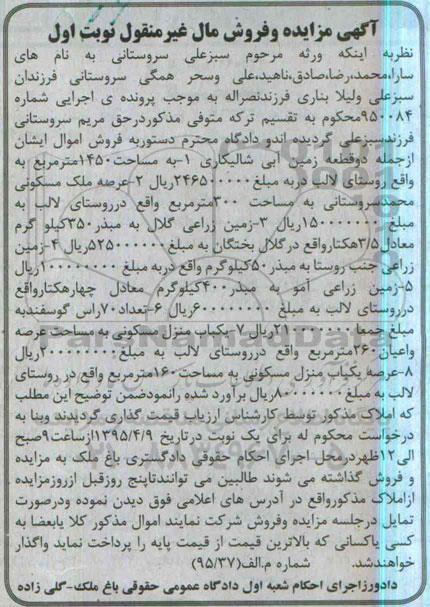 آگهی مزایده وفروش مال غیرمنقول نوبت اول
نظربه اینکه ورثه مرحوم سبزعلی سروستانی به نام های
سارا،محمد،رضا،صادق،ناهید،علی وسحر همگی سروستانی فرزندان
سبزعلی ولیلا بناری فرزندنصراله به موجب پرونده ی اجرایی شماره
۹۵۰۰۸۴محکوم به تقسیم ترکه متوفی مذکوردرحق مریم سروستانی
فرزندسبزعلی گردیده اندو دادگاه محترم دستوربه فروش اموال ایشان
ازجمله دوقطعه زمین آبی شالیکاری ۱-به مساحت۱۴۵۰مترمربع به
واقع روستای لالب دربه مبلغ ۲۴۶۵۰۰۰۰۰ریال ۲-عرصه ملک مسکونی
محمدسروستانی به مساحت ۳۰۰مترمربع واقع درروستای لالب به
مبلغ ۱۵۰۰۰۰۰۰۰ریال ۳-زمین زراعی گلال به مبذر۳۵۰کیلو گرم
معادل۳/۵هکتارواقع درگلال بختگان به مبلغ۵۲۵۰۰۰۰۰۰ریال ۴-زمین
زراعی جنب روستا به مبذر۵۰کیلوگرم واقع دربه مبلغ ۱۰۰۰۰۰۰۰۰ریال
۵-زمین زراعی آمو به مبذر۴۰۰کیلوگرم معادل چهارهکتارواقع
درروستای لالب به مبلغ ۶۰۰۰۰۰۰۰۰ریال ۶-تعداد۷۰راس گوسفندبه
مبلغ جمعا ۲۱۰۰۰۰۰۰۰ریال ۷-یکباب منزل مسکونی به مساحت عرصه
واعیان۲۶۰مترمربع واقع درروستای لالب به مبلغ۲۰۰۰۰۰۰۰۰ریال
۸-عرصه یکباب منزل مسکونی به مساحت ۱۶۰مترمربع واقع در روستای
لالب به مبلغ ۸۰۰۰۰۰۰۰ریال برآورد شده رانمودضمن توضیح این مطلب
که املاک مذکور توسط کارشناس ارزیاب قیمت گذاری گردیدند وبنا به
درخواست محکوم له برای یک نوبت درتاریخ ۱۳۹۵/۴/۹ازساعت۹صبح
الی۱۲ظهردرمحل اجرای احکام حقوقی دادگستری باغ ملک به مزایده
و فروش گذاشته می شوند طالبین می توانندتاپنج روزقبل ازروزمزایده
ازاملاک مذکورواقع در آدرس های اعلامی فوق دیدن نموده ودرصورت
تمایل درجلسه مزایده وفروش شرکت نمایند اموال مذکور کلا یابعضا به
کسی یاکسانی که بالاترین قیمت از قیمت پایه را پرداخت نماید واگذار
خواهندشد. شماره م.الف(۹۵/۳۷)
دادورزاجرای احکام شعبه اول دادگاه عمومی حقوقی باغ ملک-گلی زاده
ParsNamadData